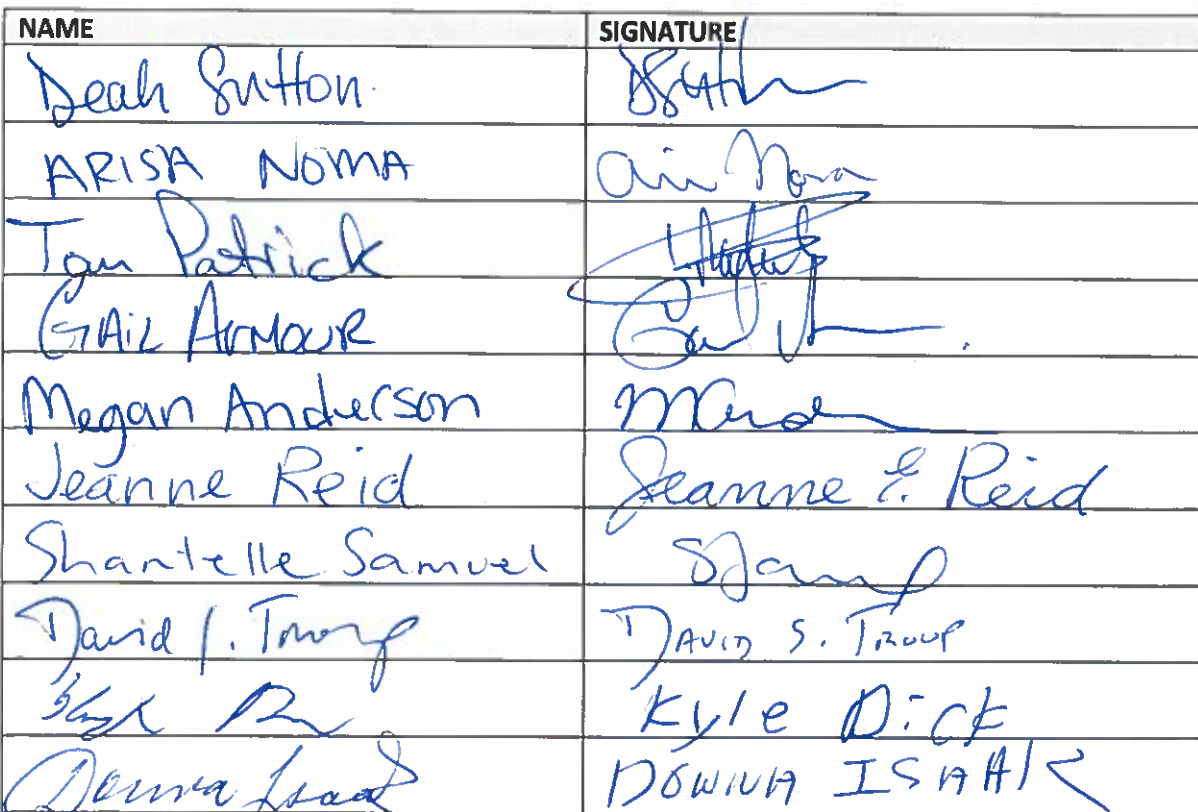 NAME SIGNATURE
Deah Sutton
ARISA NOMA
Tom Patrick
GAIL ARMOUR
Megan Anderson
Jeanne Reid Jeanne E. Reid
Shantelle Samuel
David S. Troup DAVID S. TROUP
Kyle Dick
Donna Isaak DONNA ISAAK